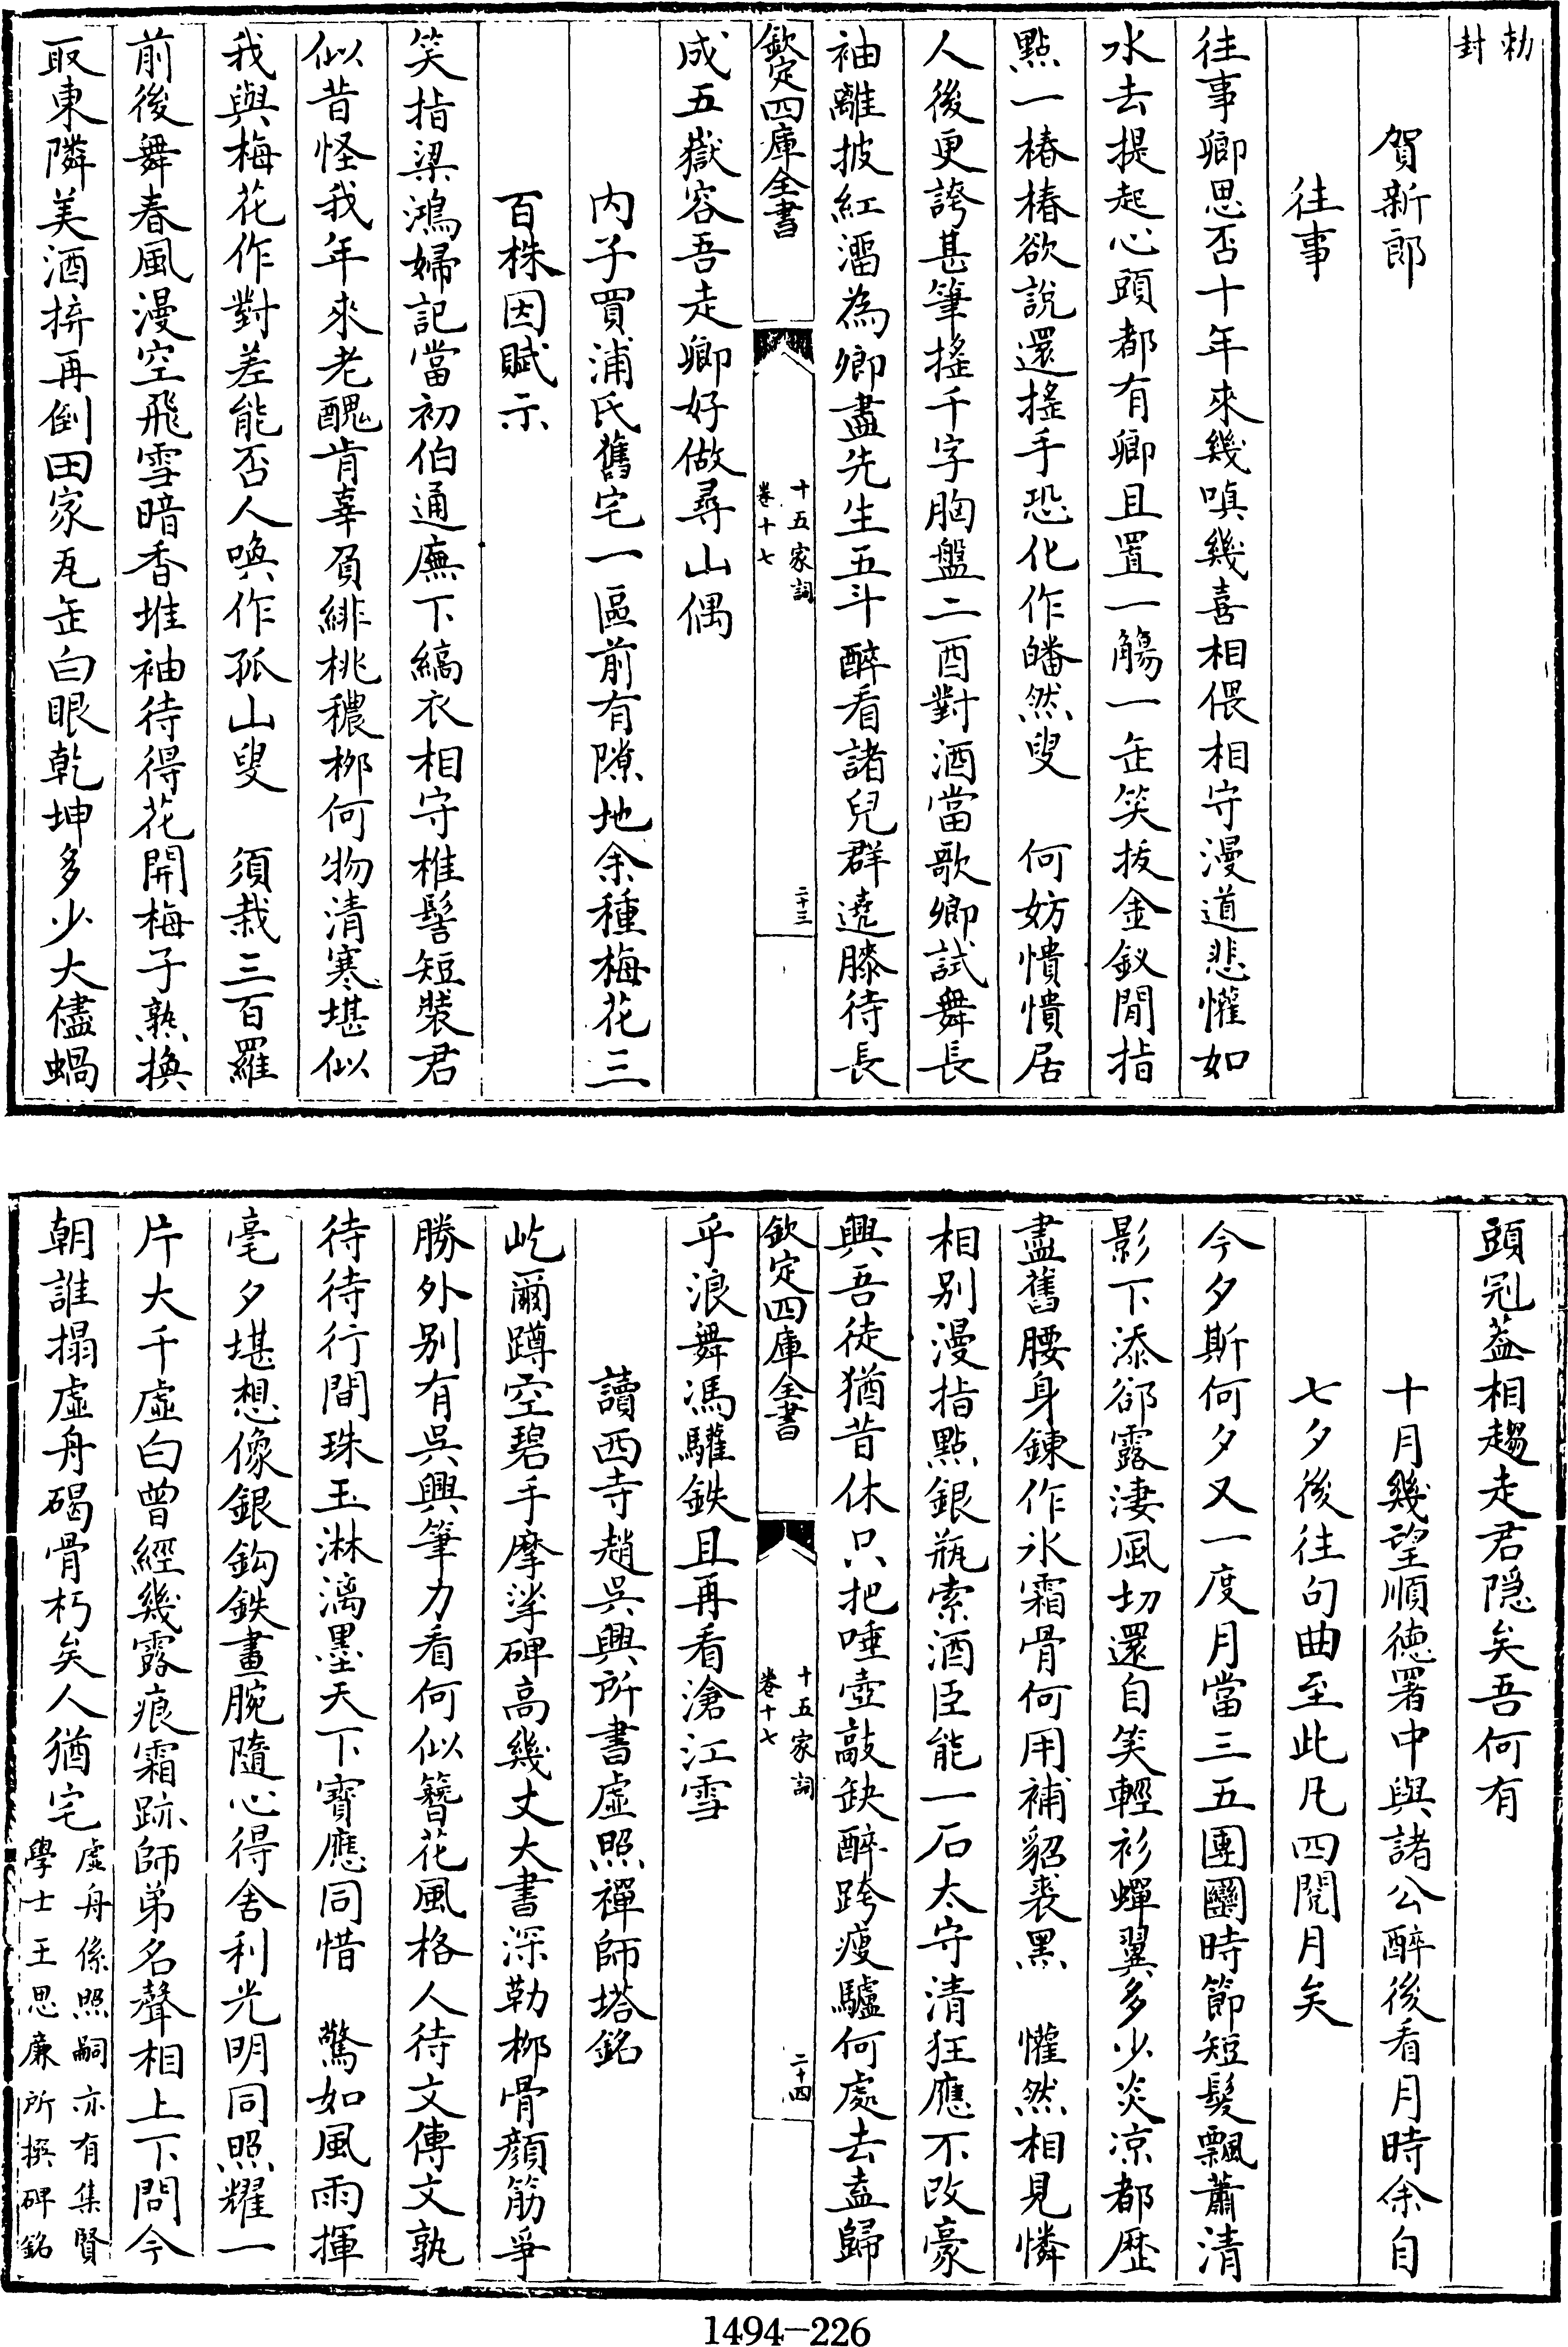 勑
封
賀新郎
往事
往事卿思否十年來幾嗔幾喜相偎相守漫道悲懽如
水去提起心頭都有卿且置一觴一缶笑拔金釵閒指
點一樁樁欲說還搖手恐化作皤然叟　何妨憒憒居
人後更誇甚筆搖千字胸盤二酉對酒當歌卿試舞長
袖離披紅溜為卿盡先生五斗醉看諸兒群遶膝待長
欽定四庫全書
十五家詞
卷十七
二十三
成五嶽容吾走卿好做尋山偶
内子買浦氏舊宅一區前有隙地余種梅花三
百株因賦示
笑指梁鴻婦記當初伯通廡下縞衣相守椎髻短裝君
似昔怪我年來老醜肯辜負緋桃穠柳何物清寒堪似
我與梅花作對差能否人喚作孤山叟　須栽三百羅
前後舞春風漫空飛雪暗香堆袖待得花開梅子熟換
取東隣美酒拚再倒田家瓦缶白眼乾坤多少大儘蝸
頭冠蓋相趨走君隱矣吾何有
十月幾望順德署中與諸公醉後看月時余自
七夕後往句曲至此凡四閱月矣
今夕斯何夕又一度月當三五團圞時節短髮飄蕭清
影下添郤露淒風切還自笑輕衫蟬翼多少炎凉都歷
盡舊腰身鍊作氷霜骨何用補貂裘黑　懽然相見憐
相别漫指點銀瓶索酒臣能一石太守清狂應不改豪
興吾徒猶昔休只把唾壺敲缺醉跨瘦驢何處去盍歸
欽定四庫全書
十五家詞
卷十七
二十四
乎浪舞馮驩鉄且再看滄江雪
讀西寺趙吳興所書虛照禪師塔銘
屹爾蹲空碧手摩挲碑高幾丈大書深勒柳骨顔筋爭
勝外别有吳興筆力看何似簪花風格人待文傳文孰
待待行間珠玉淋漓墨天下寶應同惜　驚如風雨揮
毫夕堪想像銀鈎鉄畫腕隨心得舍利光明同照耀一
片大千虛白曾經幾露痕霜跡師弟名聲相上下問今
朝誰搨虛舟碣骨朽矣人猶宅
虛舟係照嗣亦有集賢
學士王思廉所撰碑銘
1494—226